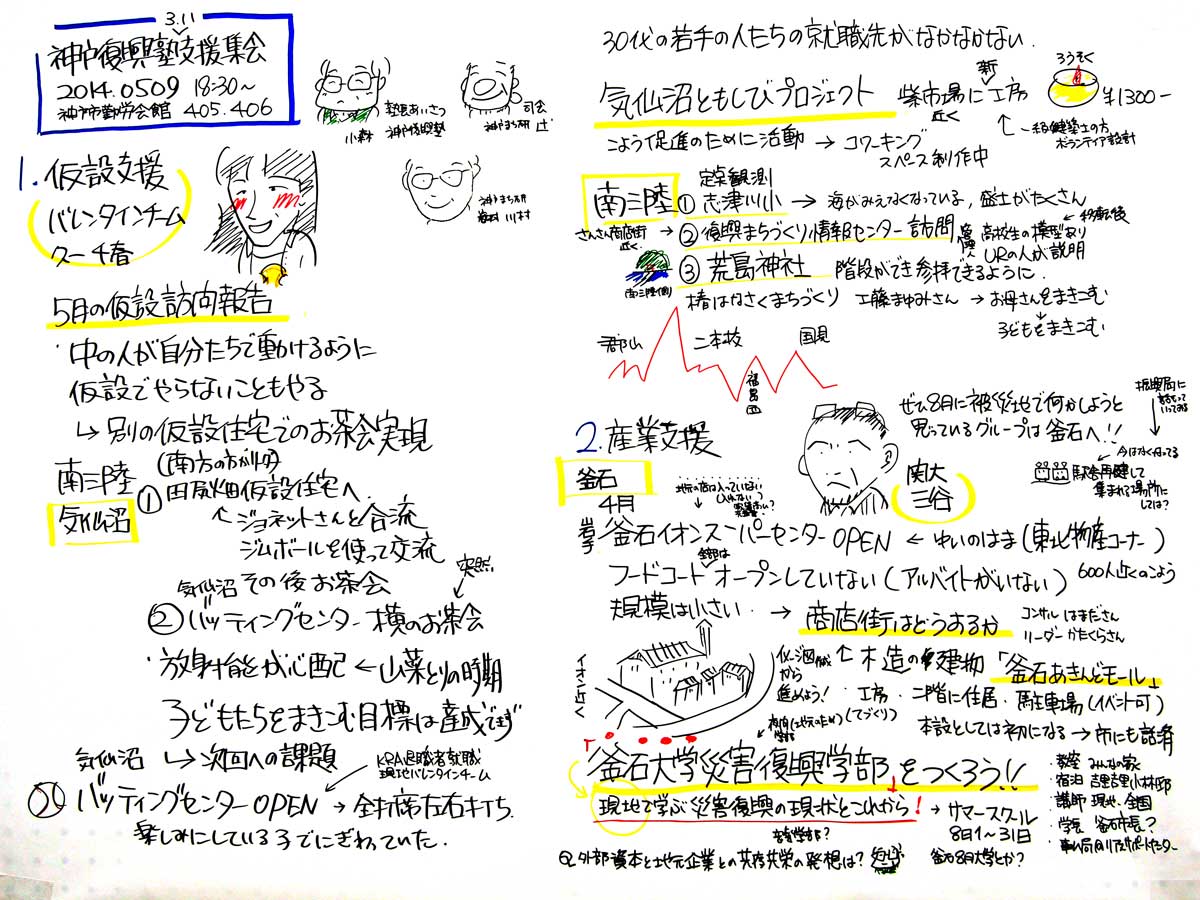 3.11
神戸復興塾支援集会
2014.0509 18:30〜
神戸市勤労会館 405.406
塾長あいさつ
小森 神戸復興塾
司会
神戸まち研 辻
神戸まち研
1. 仮設支援
バレンタインチーム
5月の仮設訪問報告
・中の人が自分たちで動けるように
仮設でやらないこともやる
↳ 別の仮設住宅でのお茶会実現
南三陸 (南方の方が
気仙沼
① 仮設住宅へ
← ジョネットさんと合流
ジムボールを使って交流
気仙沼 その後お茶会
突然
② バッティングセンター横のお茶会
・放射能が心配 ← 山菜とりの時期
子どもたちをまきこむ目標は達成できず
気仙沼 ↳ 次回への課題
退職者就職
現地バレンタインチーム
② バッティングセンターOPEN → 全打席左右打ち
楽しみにしている子でにぎわっていた.
30代の若手の人たちの就職先がなかなかない.
気仙沼ともしびプロジェクト
新
柴市場に工房
近く
ろうそく
¥1300-
ボランティア設計
こよう促進のために活動 → コワーキング
スペース制作中
南三陸
定点観測
① 志津川小 → 海がみえなくなっている, 盛土がたくさん
さんさん商店街
近く
② 復興まちづくり情報センター訪問
← 移転後
高校生の模型あり
URの人が説明
③ 荒島神社 階段ができ参拝できるように.
椿はなさくまちづくり 工藤まゆみさん → お母さんをまきこむ
子どもをまきこむ
郡山 二本松 国見
福島西
2. 産業支援
ぜひ8月に被災地で何かしようと
思っているグループは釜石へ!!
関大
三谷
振興局に
駅舎再建して
集まれる場所に
しては?
釜石
4月
地元の店は入っていない
岩手 釜石イオンスーパーセンター OPEN ← ゆいのはま (東北物産コーナー)
全部は
フードコートオープンしていない (アルバイトがいない) 600人近くのこよう
規模は小さい. → 商店街はどうあるか
コンサル はまださん
リーダー かたくらさん
イオン近く
から
進めよう!
↑ 木造の 建物 「釜石あきんどモール」
・工房 ・二階に住居 ・駐車場 (イベント可)
(てづくり)
本設としては初になる → 市にも話済
"釜石大学災害復興学部"をつくろう!!
現地で学ぶ災害復興の現状とこれから!
→ サマースクール
8月1〜31日
釜石8月大学とか?
・教室 みんなの家
・宿泊 吉里吉里小林邸
・講師 現地・全国
・学長 釜石市長?
Q. 外部資本と地元企業との共存共栄の発想は?